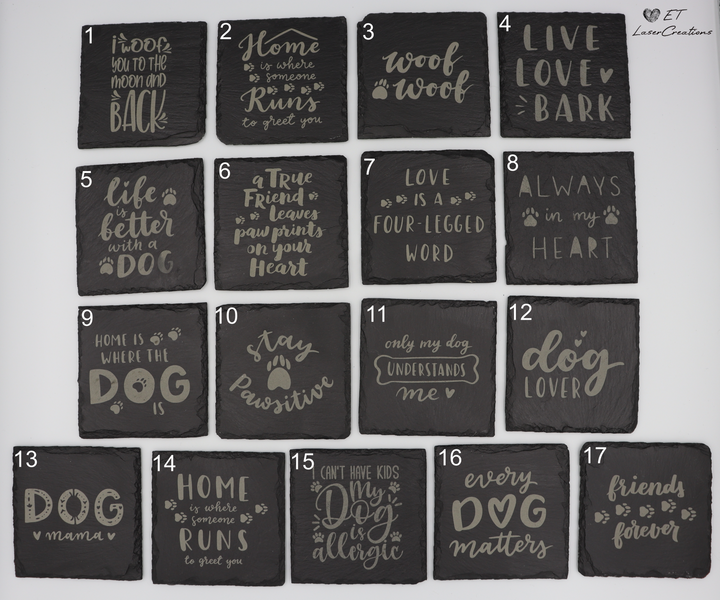 ET
LaserCreations
1
i woof
YOU TO THE
moon AND
BACK
2
Home
is where
someone
Runs
to greet you
3
woof
woof
4
LIVE
LOVE
BARK
5
life
is
better
with a
DOG
6
a True
Friend
leaves
paw prints
on your
Heart
7
LOVE
IS A
FOUR-LEGGED
WORD
8
ALWAYS
in my
HEART
9
HOME IS
WHERE THE
DOG
IS
10
stay
Pawsitive
11
only my dog
UNDERSTANDS
me
12
dog
LOVER
13
DOG
mama
14
HOME
is where
someone
RUNS
to greet you
15
I CAN'T HAVE KIDS
My
Dog
is
allergic
16
every
DOG
matters
17
friends
forever